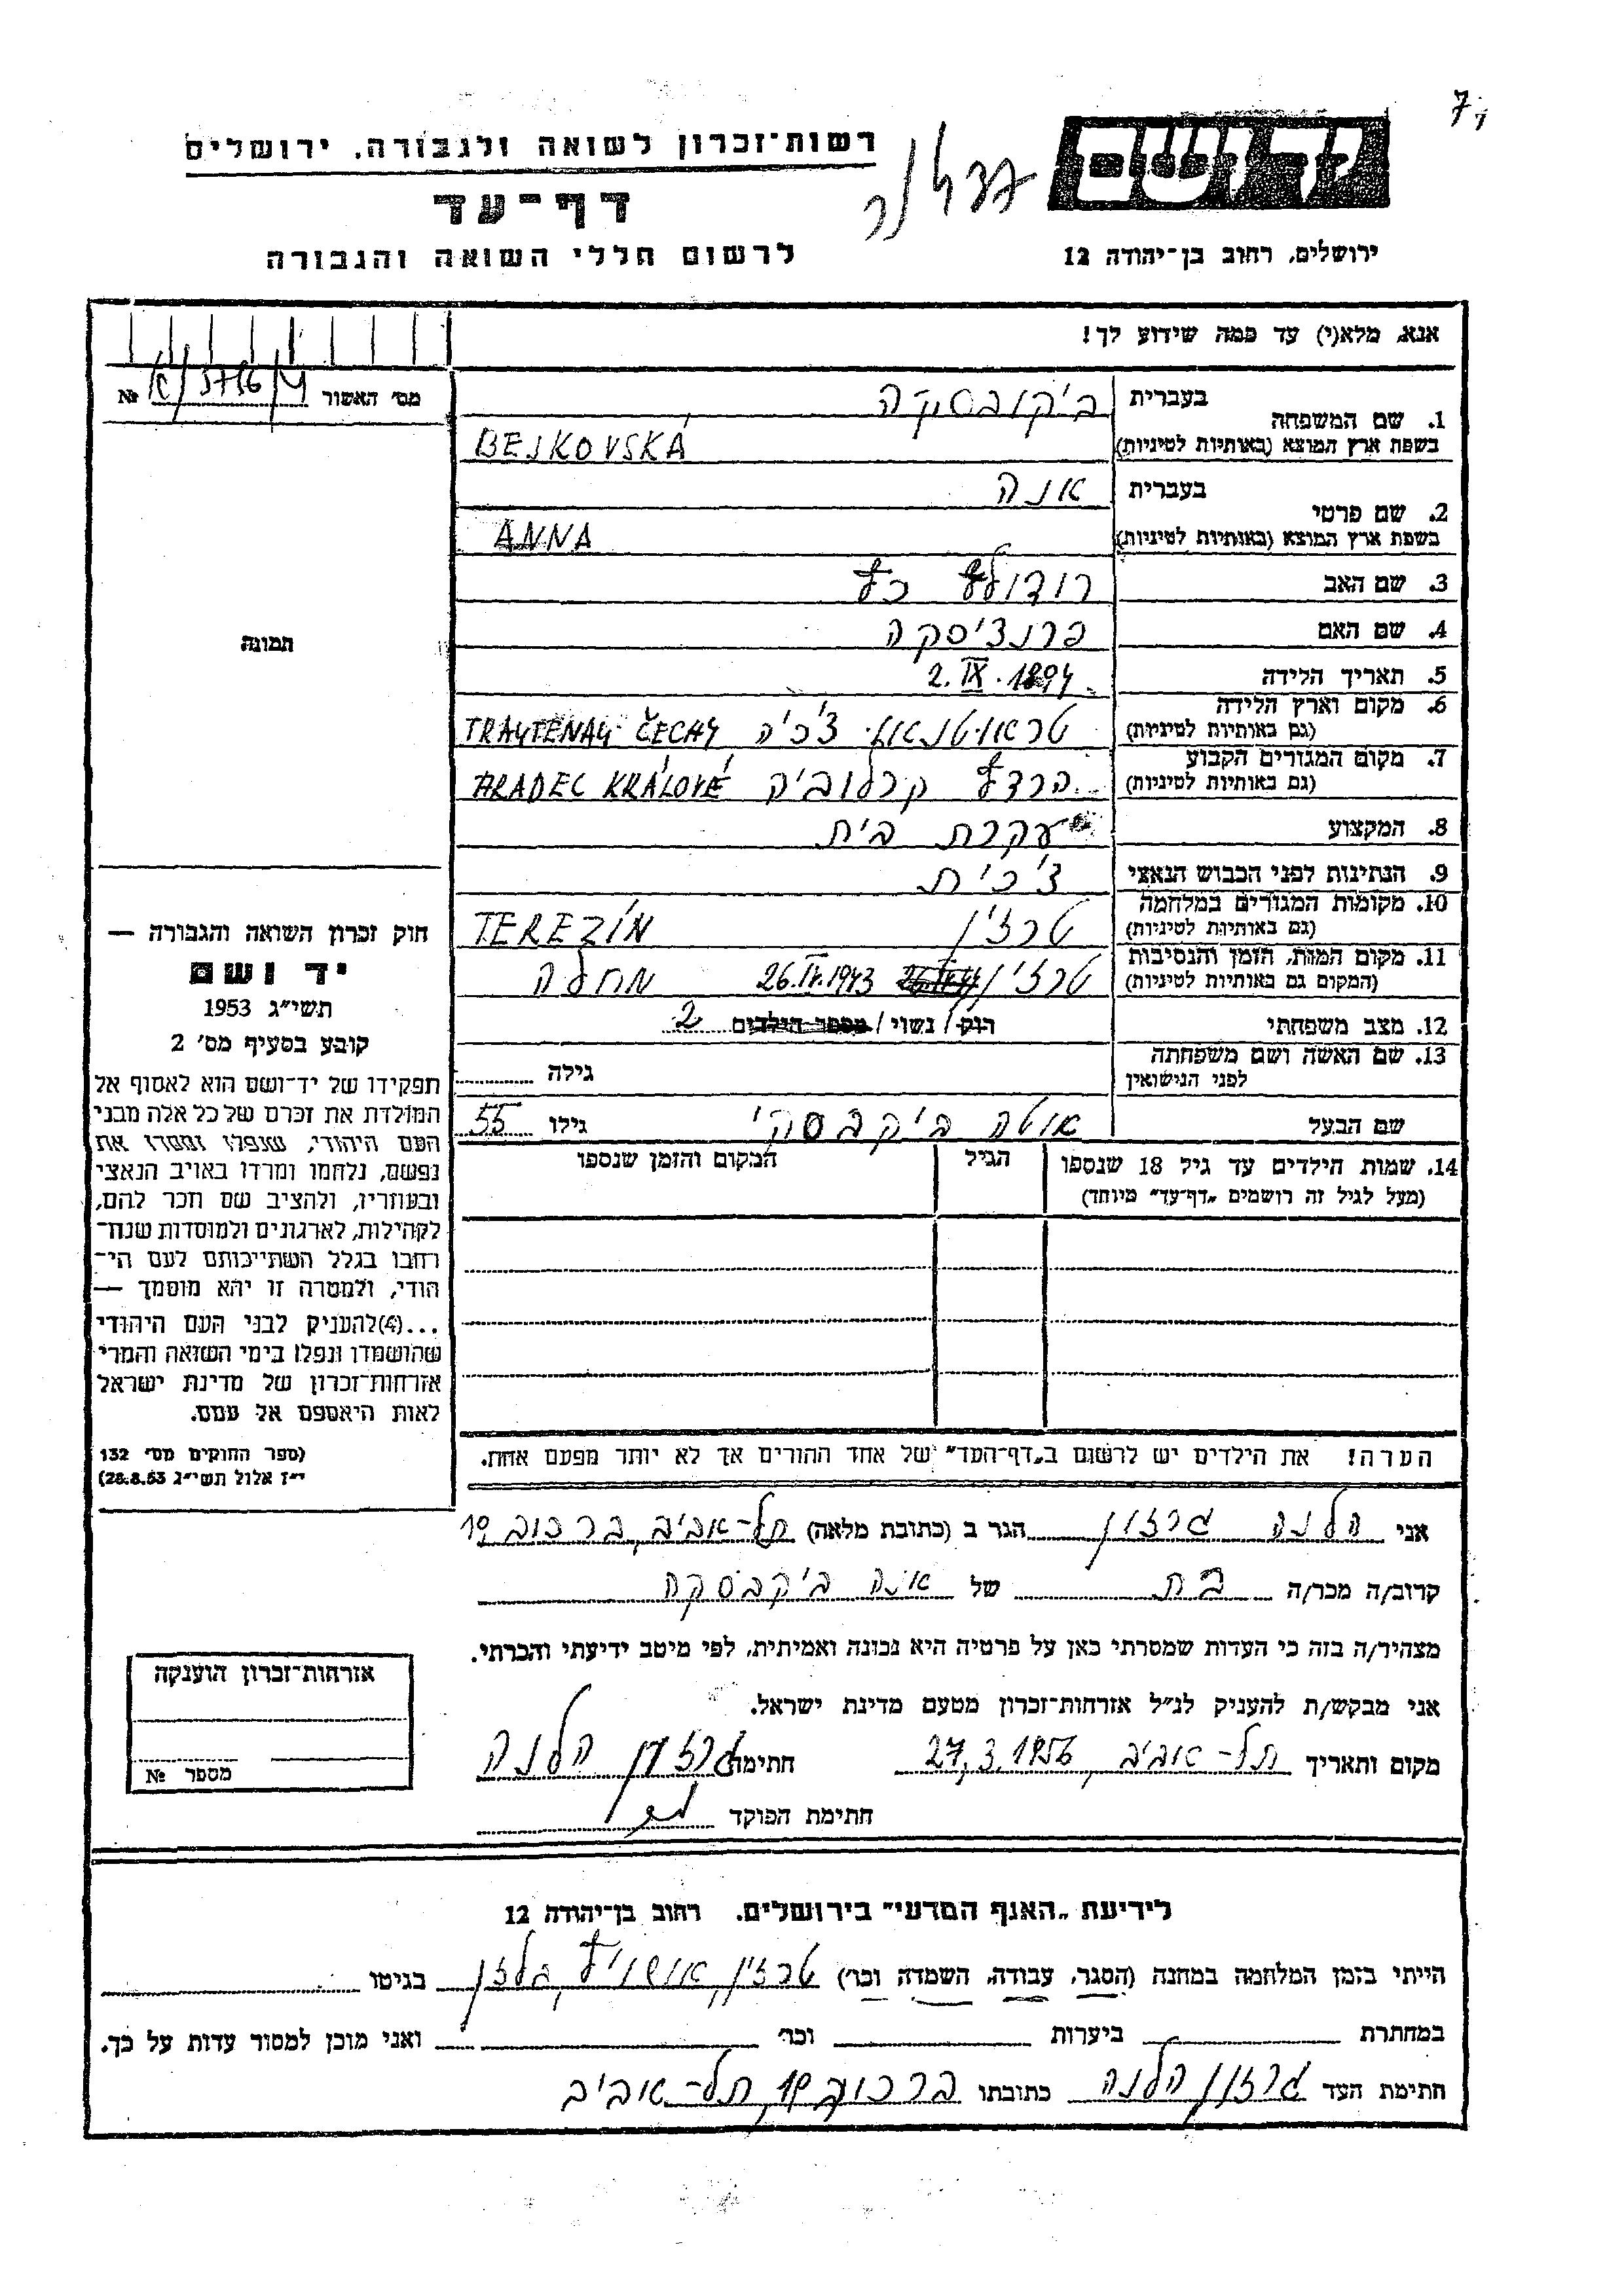 רשות־זכרון לשואה ולגבורה, ירושלים
דף־עד
לרשום חללי השואה והגבורה
יד ושם
ירושלים, רחוב בן־יהודה 12
אנא, מלא(י) עד כמה שידוע לך!
מס' האשור №
1. שם המשפחה בעברית בייקובסקה
בשפת ארץ המוצא (באותיות לטיניות) BEJKOVSKÁ
2. שם פרטי בעברית אנה
בשפת ארץ המוצא (באותיות לטיניות) ANNA
3. שם האב רודולף
4. שם האם פרנציסקה
5. תאריך הלידה 2. IX. 1894
6. מקום וארץ הלידה (גם באותיות לטיניות) טראוטנאו צ'כיה TRAUTENAU ČECHY
7. מקום המגורים הקבוע (גם באותיות לטיניות) הרדץ קרלוביה HRADEC KRÁLOVÉ
8. המקצוע עקרת בית
9. הנתינות לפני הכבוש הנאצי צ'כית
10. מקומות המגורים במלחמה (גם באותיות לטיניות) טרזין TEREZÍN
11. מקום המות, הזמן והנסיבות (המקום גם באותיות לטיניות) טרזין 26.IV.1943 מחלה
12. מצב משפחתי רוק/ נשוי/ מספר הילדים 2
13. שם האשה ושם משפחתה לפני הנישואין גילה
שם הבעל אוטה בייקבסקי גילו 55
14. שמות הילדים עד גיל 18 שנספו (מעל לגיל זה רושמים „דף־עד" מיוחד) הגיל המקום והזמן שנספו
תמונה
חוק זכרון השואה והגבורה —
יד ושם
תשי"ג 1953
קובע בסעיף מס' 2
תפקידו של יד־ושם הוא לאסוף אל
המולדת את זכרם של כל אלה מבני
העם היהודי, שנפלו ומסרו את
נפשם, נלחמו ומרדו באויב הנאצי
ובעוזריו, ולהציב שם וזכר להם,
לקהילות, לארגונים ולמוסדות שנח־
רבו בגלל השתייכותם לעם הי־
הודי, ולמטרה זו יהא מוסמך —
...(4) להעניק לבני העם היהודי
שהושמדו ונפלו בימי השואה והמרי
אזרחות־זכרון של מדינת ישראל
לאות היאספם אל עמם.
(ספר החוקים מס' 132
י"ז אלול תשי"ג 28.8.53)
הערה! את הילדים יש לרשום ב„דף־העד" של אחד ההורים אך לא יותר מפעם אחת.
אני הלנה גרזון הגר ב (כתובת מלאה) תל-אביב, ברכוב 19
קרוב/ה מכר/ה בת של אנה בייקבסקה
מצהיר/ה בזה כי העדות שמסרתי כאן על פרטיה היא נכונה ואמיתית, לפי מיטב ידיעתי והכרתי.
אני מבקש/ת להעניק לנ"ל אזרחות־זכרון מטעם מדינת ישראל.
מקום ותאריך תל-אביב, 27.3.1956 חתימה גרזון הלנה
חתימת הפוקד
אזרחות־זכרון הוענקה
מספר №
לידיעת „האגף המדעי" בירושלים. רחוב בן־יהודה 12
הייתי בזמן המלחמה במחנה (הסגר, עבודה, השמדה וכו') טרזין, אושויץ, בלזן בגיטו
במחתרת ביערות וכו' ואני מוכן למסור עדות על כך.
חתימת העד גרזון הלנה כתובתו ברכוב 19, תל-אביב